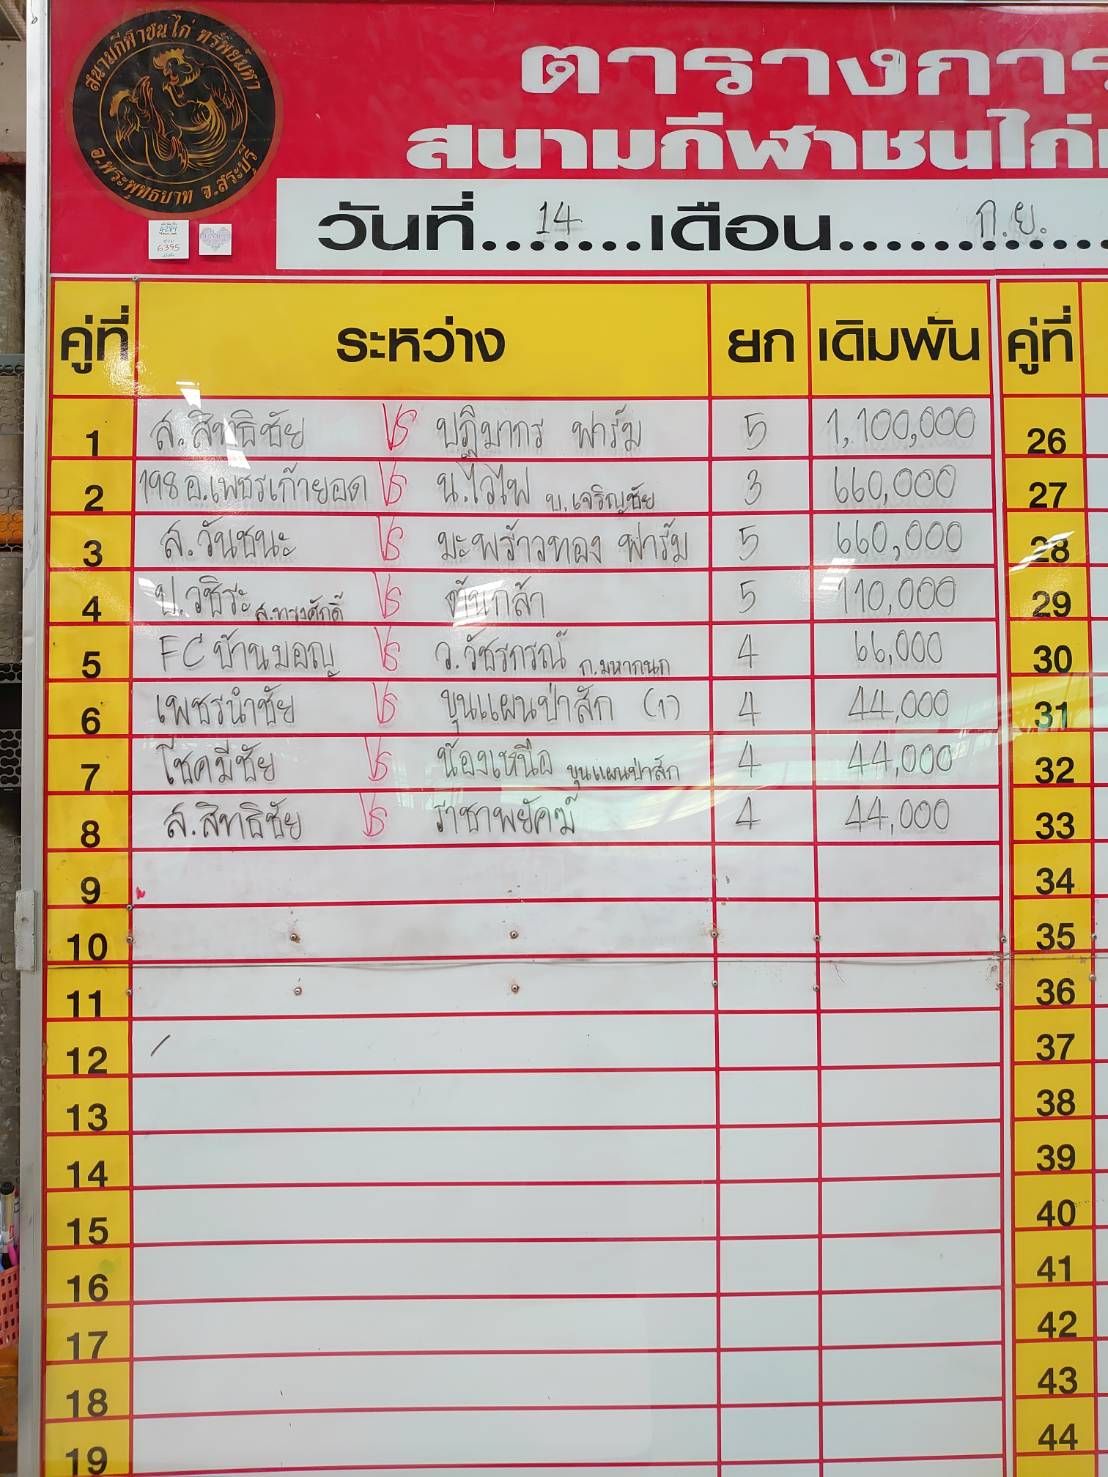 สนามกีฬาชนไก่ ทรัพย์มหา
อ.พระพุทธบาท จ.สระบุรี
ตารางการ
สนามกีฬาชนไก่
วันที่.......14.......เดือน............ก.ย.............
คู่ที่ ระหว่าง ยก เดิมพัน คู่ที่
1 ส.สิทธิชัย VS ปฏิมากร ฟาร์ม 5 1,100,000 26
2 198 อ.เพชรเก้ายอด VS น.ไวไฟ บ.เจริญชัย 3 660,000 27
3 ส.วันชนะ VS มะพร้าวทอง ฟาร์ม 5 660,000 28
4 ป.วชิระ ส.ทรงศักดิ์ VS ต้นกล้า 5 110,000 29
5 FC บ้านมอญ VS ว.วัชรกรณ์ ก.มหากนก 4 66,000 30
6 เพชรนำชัย VS ขุนแผนป่าสัก (1) 4 44,000 31
7 โชคมีชัย VS น้องเหนือ ขุนแผนป่าสัก 4 44,000 32
8 ส.สิทธิชัย VS ราชาพยัคฆ์ 4 44,000 33
9 34
10 35
11 36
12 37
13 38
14 39
15 40
16 41
17 42
18 43
19 44